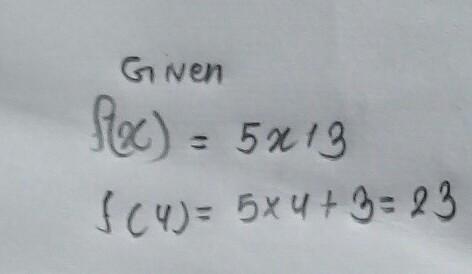 Given
f(x) = 5x+3
f(4) = 5×4+3=23